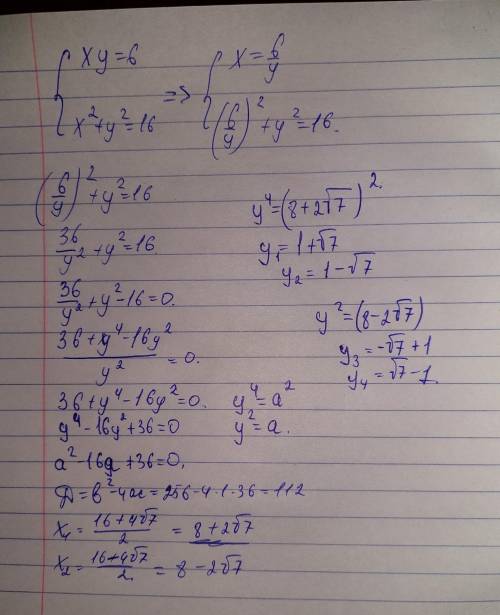 { xy = 6
x² + y² = 16
=> { x = 6/y
(6/y)² + y² = 16.
(6/y)² + y² = 16
36/y² + y² = 16.
36/y² + y² - 16 = 0.
(36 + y⁴ - 16y²)/y² = 0.
36 + y⁴ - 16y² = 0.
y⁴ - 16y² + 36 = 0
a² - 16a + 36 = 0.
D = b² - 4ac = 256 - 4·1·36 = 112
x₁ = (16 + 4√7)/2 = 8 + 2√7
x₂ = (16 + 4√7)/2. = 8 - 2√7
y⁴ = a²
y² = a.
y⁴ = (8 + 2√7)².
y₁ = 1 + √7
y₂ = 1 - √7
y² = (8 - 2√7)
y₃ = -√7 + 1
y₄ = √7 - 1.